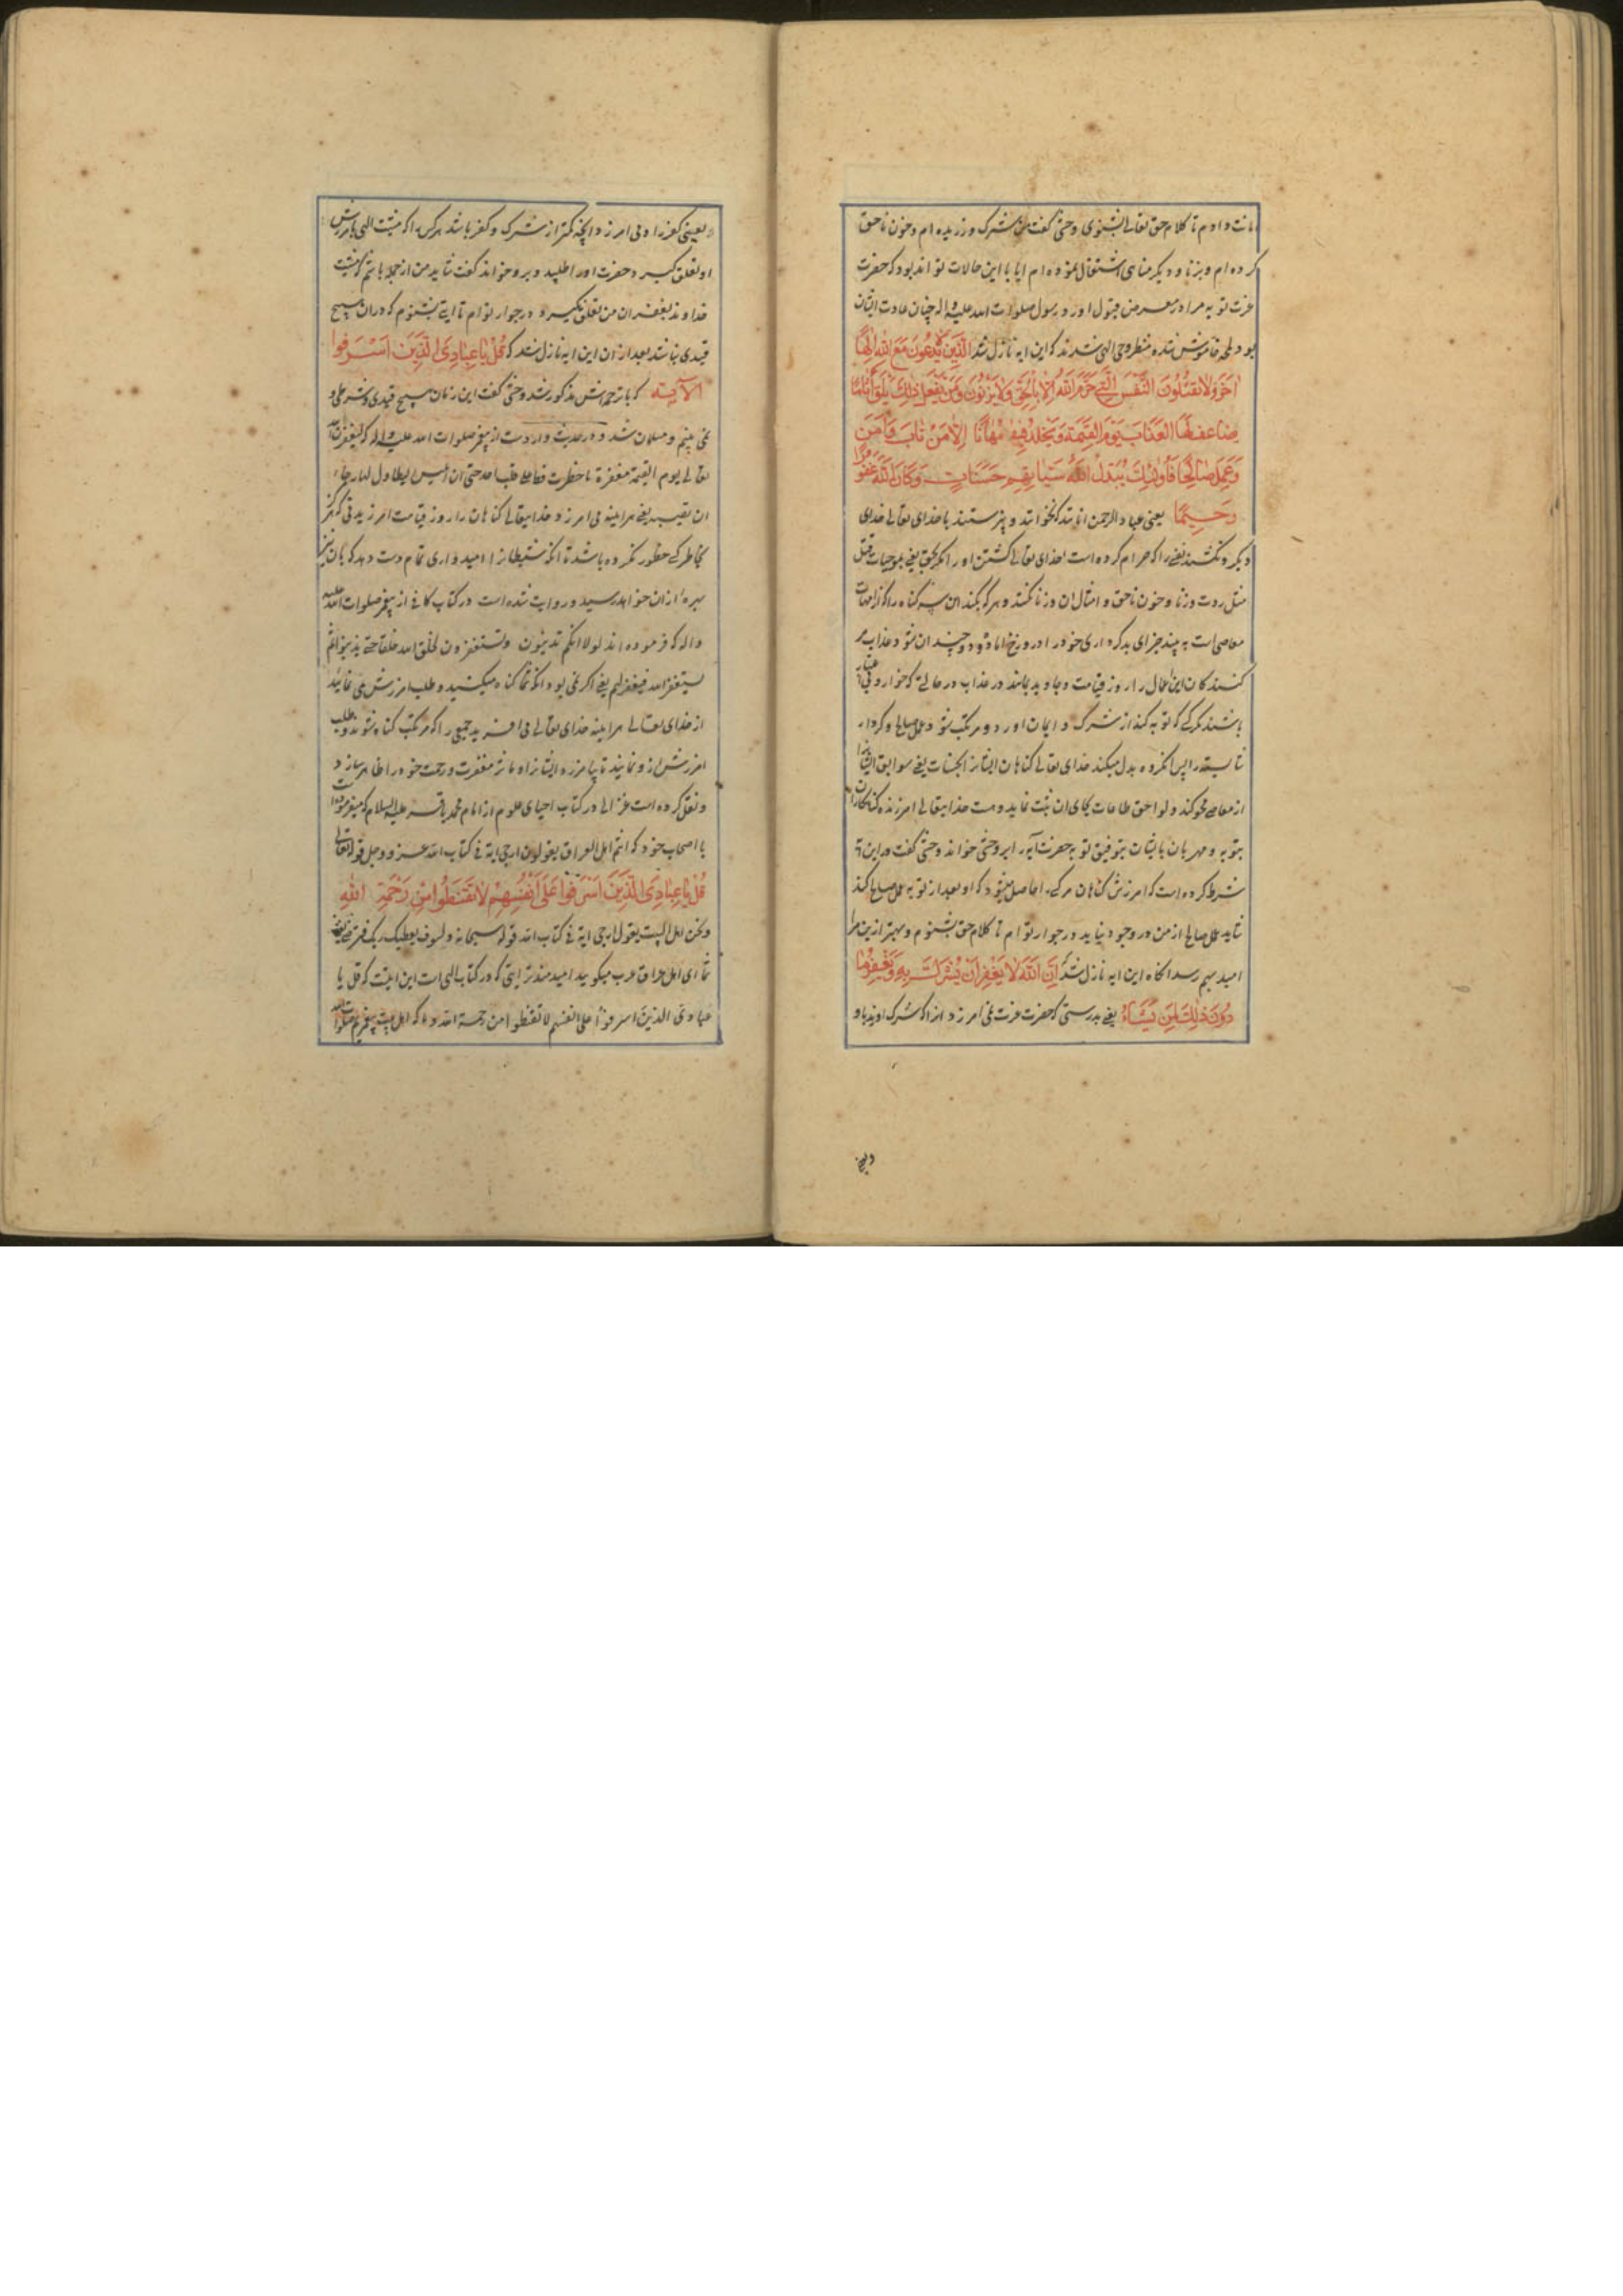 امانت دادم تا کلام حق تعالی بشنوی وحشی گفت من شرک ورزیده ام و خون ناحق
کرده ام و بزنا و دیگر مناهی اشتغال نموده ام ایا با این حالات تواند بود که حضرت
عزت توبه مرا در معرض قبول اورد رسول صلوات الله علیه واله چنان عادت ایشان
بود لمحه خاموش شده منتظر وحی الهی شدند که این ایه نازل شد الَّذِینَ لایَدْعُونَ مَعَ اللهِ اِلٰهًا
اٰخَرَ وَلایَقْتُلُونَ النَّفْسَ الَّتِی حَرَّمَ اللهُ اِلّا بِالْحَقِّ وَلایَزْنُونَ وَمَنْ یَفْعَلْ ذٰلِکَ یَلْقَ اَثامًا
یُضاعَفْ لَهُ الْعَذابُ یَوْمَ الْقِیٰمَةِ وَیَخْلُدْ فِیهِ مُهانًا اِلّا مَنْ تابَ وَاٰمَنَ
وَعَمِلَ صالِحًا فَاُولٰئِکَ یُبَدِّلُ اللهُ سَیِّئاتِهِمْ حَسَناتٍ وَکانَ اللهُ غَفُورًا
رَحِیمًا یعنی عباد الرحمن انانند که نخوانند و نپرستند با خدای تعالی خدای
دیگر و نکشند نفسی را که حرام کرده است خدای تعالی کشتن او را مگر بحق یعنی بموجبات قتل
مثل ردت و زنا و خون ناحق و امثال ان و زنا نکنند و هر که بکند این سه گناه را که از امهات
معاصی است به بیند جزای بدکرداری خود را در دوزخ اماده و دو چندان شود عذاب مر
کنندگان این اعمال را روز قیامت و جاوید بمانند در عذاب در حالتی که خوار و بی اعتبار
باشند مگر کسی که توبه کند از شرک و ایمان اورد و مرتکب شود عمل صالح و کردار
شایسته را پس انگروه بدل میکند خدای تعالی گناهان ایشانرا بحسنات یعنی سوابق ایشانرا
از معاصی محو کند و لواحق طاعات بجای ان ثبت نماید و هست خدایتعالی امرزنده گناهکاران
بتوبه و مهربان بایشان بتوفیق توبه حضرت آیه را بر وحشی خواند وحشی گفت در این ایه
شرط کرده است که امرزش گناهان مر کسی را حاصل میشود که او بعد از توبه عمل صالح کند
شاید عمل صالح از من در وجود نیاید در جوار توام تا کلام حق بشنوم و بهتر ازین مرا
امید بهم رسد انگاه این ایه نازل شد که اِنَّ اللهَ لایَغْفِرُ اَنْ یُشْرَکَ بِهِ وَیَغْفِرُ ما
دُونَ ذٰلِکَ لِمَنْ یَشاءُ یعنی بدرستی که حضرت عزت نمی امرزد انرا که شرک اورد باو
یعنی کفر را و می امرزد انچه کمتر از شرک و کفر باشد هر کس را که مشیت الهی بامرزش
او تعلق گیرد و حضرت او را طلبید و برو خواند گفت شاید من از جمله باشم که مشیت
خداوند بغفران من تعلق نگیرد در جوار توام تا ایتی بشنوم که دران هیچ
قیدی نباشد بعد ازان این ایه نازل شد که قُلْ یا عِبادِیَ الَّذِینَ اَسْرَفُوا
الآیة که با ترجمه اش مذکور شد وحشی گفت این زمان هیچ قیدی و شرطی
نمی بینم و مسلمان شد و در حدیث وارد است از پیغمبر صلوات الله علیه واله که لیغفرن الله
تعالی یوم القیمة مغفرة ما خطرت قط علی قلب احد حتی ان ابلیس لیتطاول لها رجاء
ان تصیبه یعنی هراینه می امرزد خدایتعالی گناهان را روز قیامت امرزیدنی که هرگز
بخاطر کسی خطور نکرده باشد تا انکه شیطانرا امیدواری تمام دست دهد که بان نیز
بهره ازان خواهد رسید و روایت شده است در کتاب کافی از پیغمبر صلوات الله علیه
واله که فرموده اند لولا انکم تذنبون وتستغفرون لخلق الله خلقا حتی یذنبوا ثم
یستغفر الله فیغفر لهم یعنی اگر نمی بود انکه شما گناه میکنید و طلب امرزش می نمائید
از خدای تعالی هراینه خدای تعالی می افرید جمعی را که مرتکب گناه شوند و طلب
امرزش ازو نمایند تا بیامرزد ایشانرا و اثر مغفرت و رحمت خود را ظاهر سازد
و نقل کرده است غزالی در کتاب احیای علوم از امام محمد باقر علیه السلام که میفرموده است
با اصحاب خود که انتم اهل العراق یقولون ارجی ایة فی کتاب الله عز و جل قوله تعالی
قُلْ یا عِبادِیَ الَّذِینَ اَسْرَفُوا عَلٰی اَنْفُسِهِمْ لا تَقْنَطُوا مِنْ رَحْمَةِ اللهِ
ونحن اهل البیت یقول ارجی ایة فی کتاب الله قوله سبحانه ولسوف یعطیک ربک فترضی یعنی
شما ای اهل عراق عرب میگویید امیدمندتر ایتی که در کتاب الهی است این ایتست که قل یا
عبادی الذین اسرفوا علی انفسهم لا تقنطوا من رحمة الله و ما که اهل بیت پیغمبریم صلوات الله